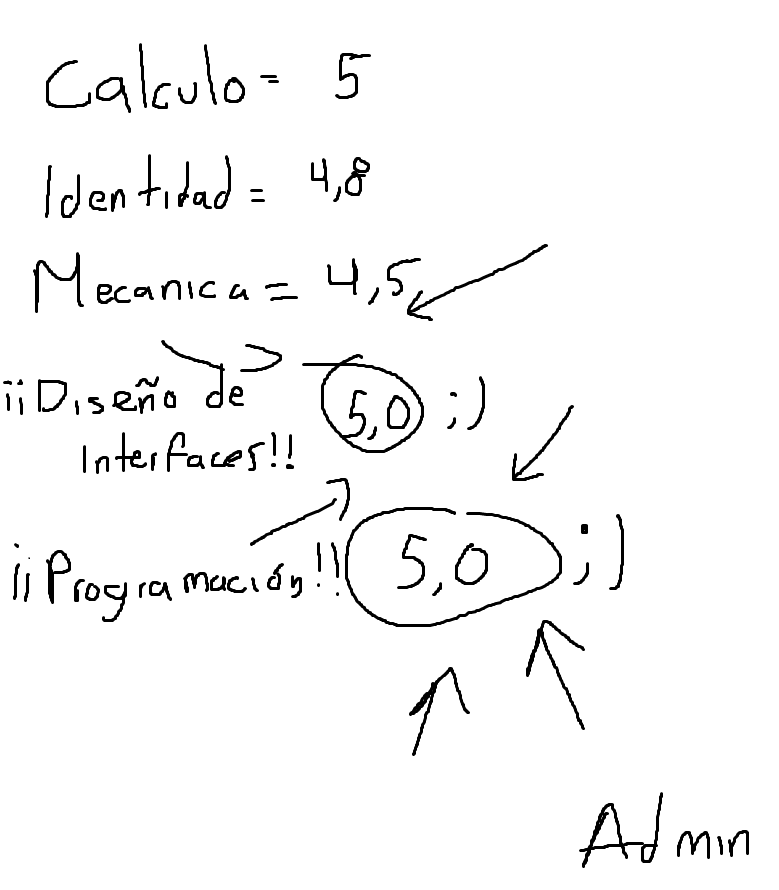 Calculo = 5
Identidad = 4,8
Mecanica = 4,5
¡¡Diseño de 5,0 ;)
Interfaces!!
¡¡Programación!! 5,0 ;)
Admin